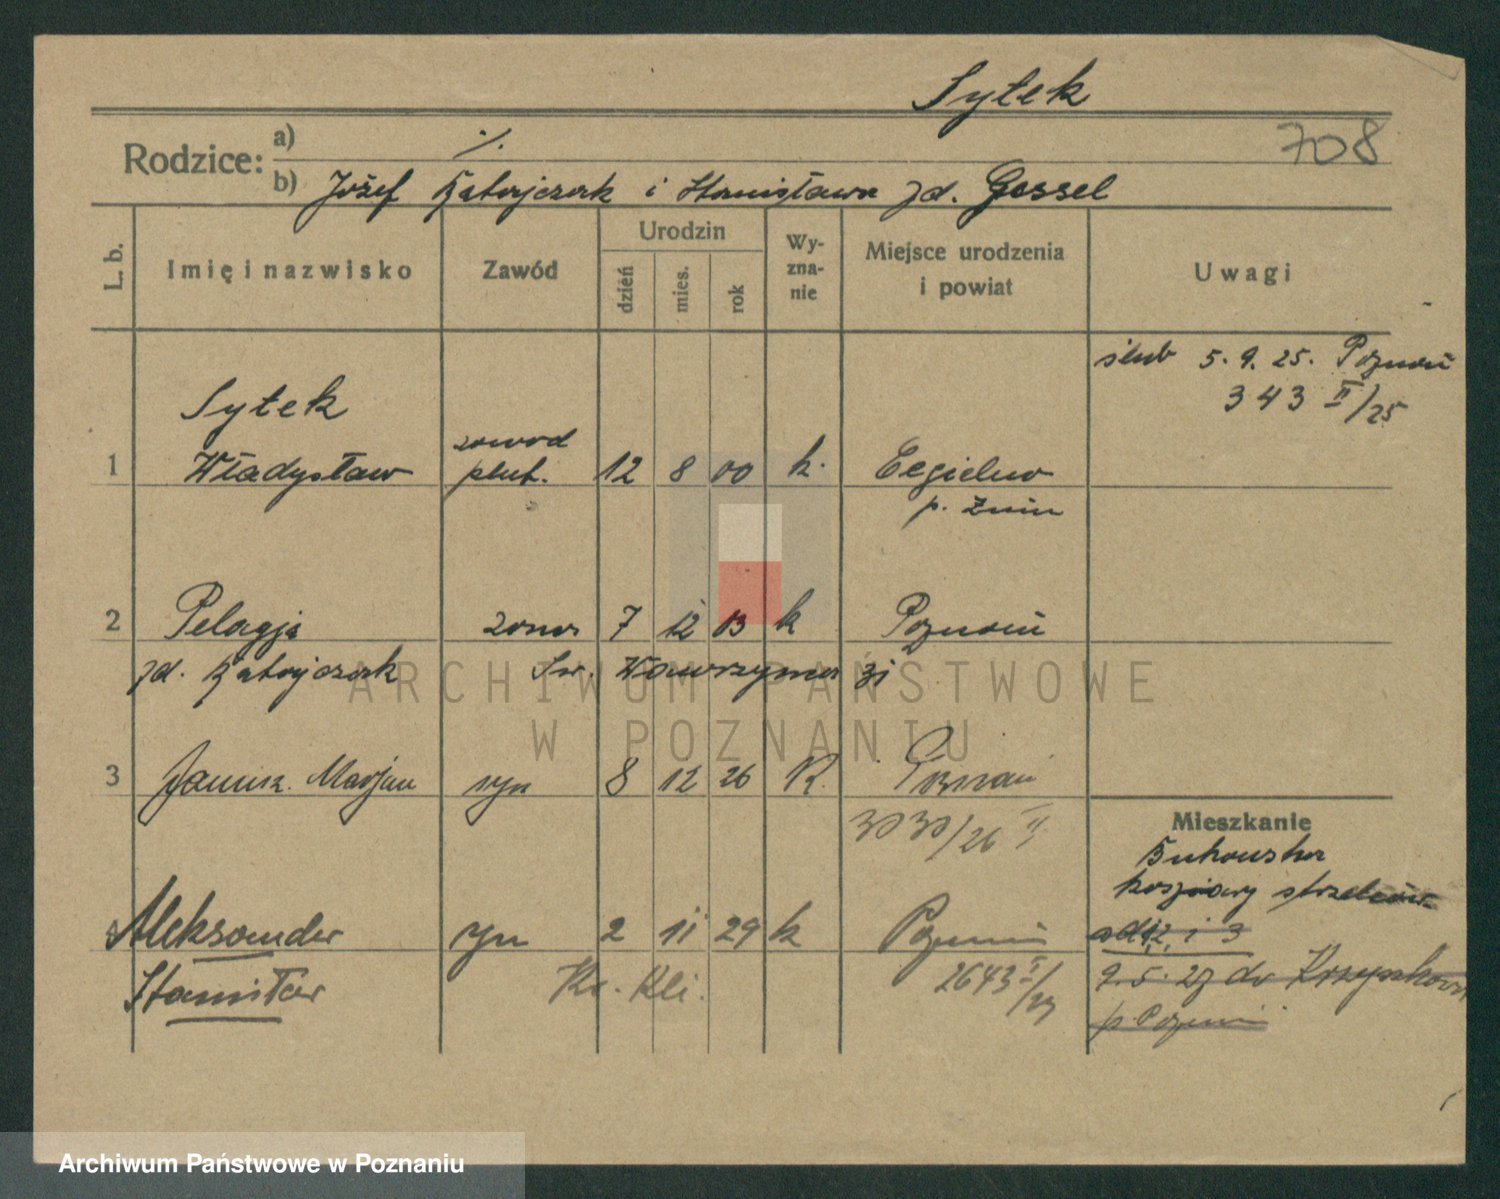 Sytek
708
Rodzice:
a) ./.
b) Józef Ratajczak i Stanisława zd. Gessel
L. b.
Imię i nazwisko
Zawód
Urodzin
dzień
mies.
rok
Wy-
zna-
nie
Miejsce urodzenia
i powiat
Uwagi
ślub 5. 9. 25. Poznań
343 II/25
Sytek
1 Władysław zawod plut. 12 8 00 k. Cegielnia
p. Żnin
2 Pelagja żona 7 12 03 k Poznań
zd. Ratajczak Św. Wawrzyńca 31
3 Janusz. Marjan syn 8 12 26 k. Poznań
3030/26 II
Mieszkanie
Bukowska
koszary strzelców
4 Aleksander syn 2 11 29 k Poznań
Stanisław Kr. Kli. 2643 I/29
9. 5. 27 do
p. Poznań
ARCHIWUM PAŃSTWOWE
W POZNANIU
Archiwum Państwowe w Poznaniu